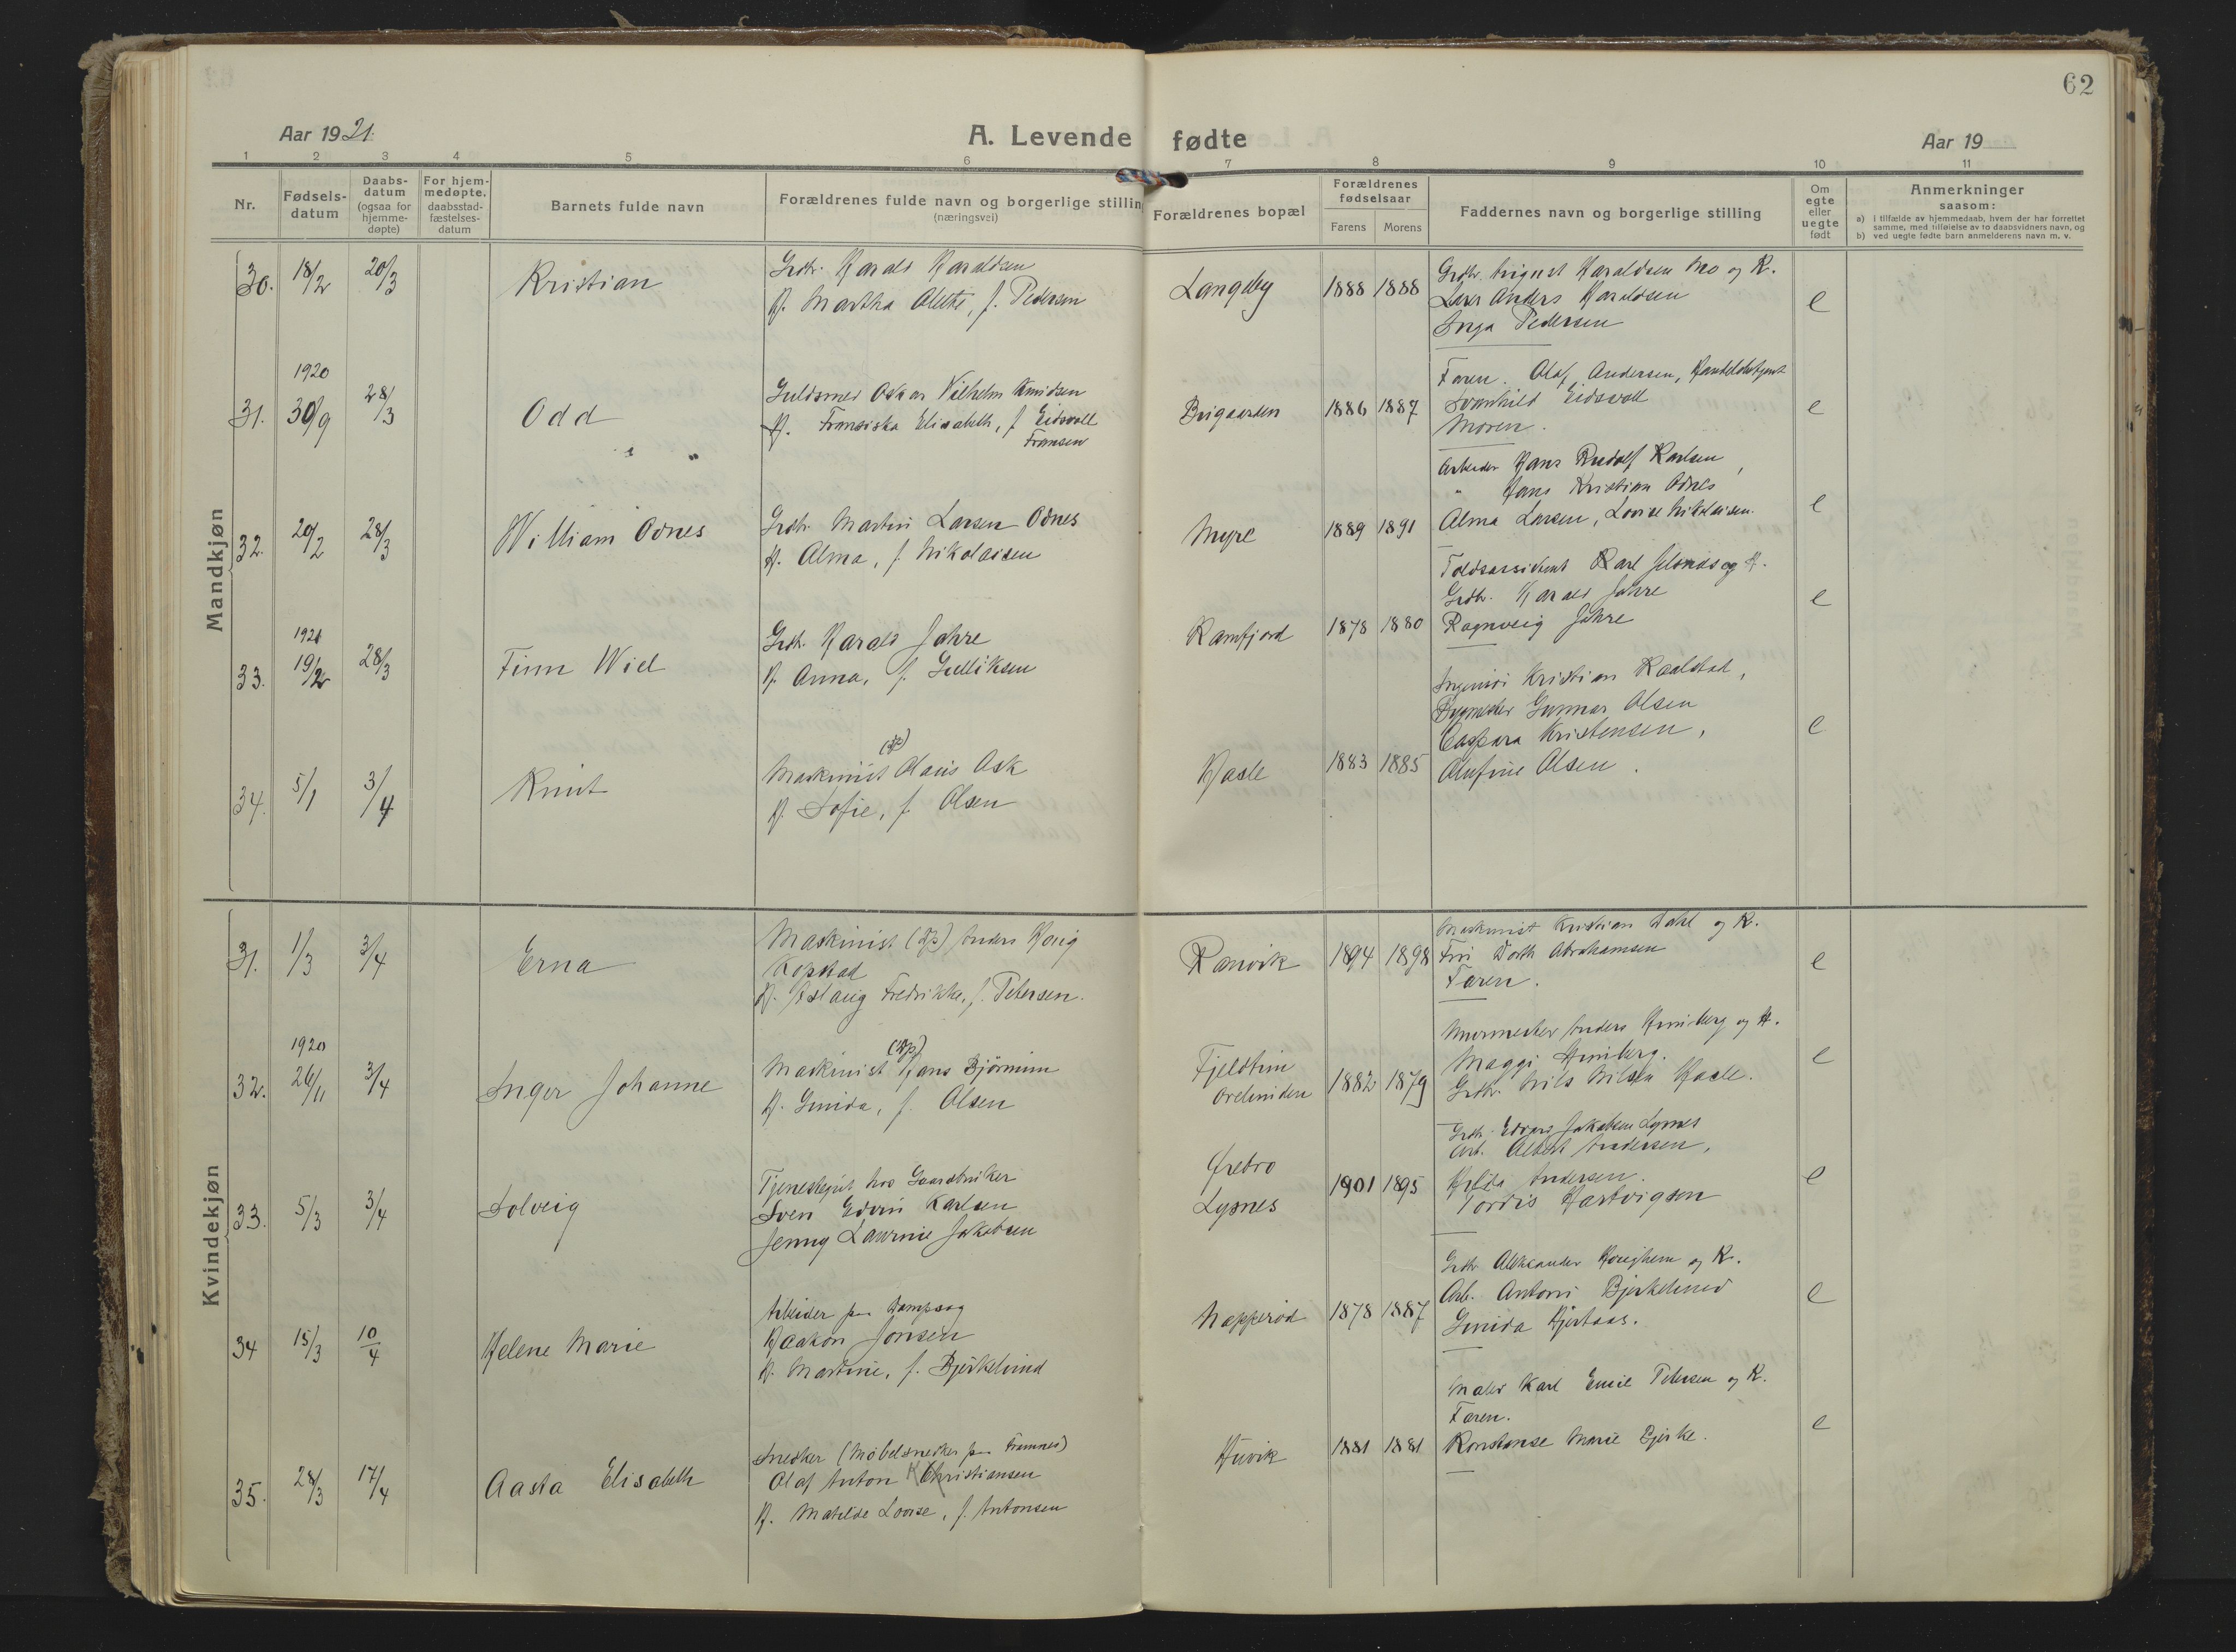 62
Aar 1921.
A. Levende fødte
Aar 19
1 2 3 4 5 6 7 8 9 10 11
Nr.
Fødsels-
datum
Daabs-
datum
(ogsaa for
hjemme-
døpte)
For hjem-
medøpte.
daabsstad-
fæstelses-
datum
Barnets fulde navn
Forældrenes fulde navn og borgerlige stillin
(næringsvei)
Forældrenes bopæl
Forældrenes
fødselsaar
Farens Morens
Faddernes navn og borgerlige stilling
Om
egte
eller
uegte
født
Anmerkninger
saasom:
a) i tilfælde av hjemmedaab, hvem der har forrettet
samme, med tilføielse av to daabsvidners navn, og
b) ved uegte fødte barn anmelderens navn m. v.
Mandkjøn
30. 18/2 20/3 Kristian
Grdbr. Harald Haraldsen
H. Martha Alette, f. Pedersen
Langeby 1888 1888
Grdbr. August Haraldsen Mo og K.
Anders Haraldsen
Inga Pedersen
e
31. 1920
30/9 28/3 Odd
" "
Guldsmed Oskar Vilhelm Knudsen
H. Fransiska Elisabeth, f. Eidsvoll
Fransen
Brigaarden 1886 1887
Faren. Olaf Andersen, Handelsbetjent
Svanhild Eidsvoll
Moren.
e
32. 20/2 28/3 William Odnes
Grdbr. Martin Larsen Odnes
H. Alma, f. Nikolaisen
Myre 1889 1891
Arbeider Hans Rudolf Karlsen,
" Hans Kristian Odnes
Alma Larsen, Lovise Nikolaisen.
e
33. 1921
19/2 28/3 Finn Wiel
Grdbr. Harald Jahre
H. Anna, f. Gulliksen
Ramfjord 1878 1880
Toldassistent Karl og H.
Grdbr. Harald Jahre
Ragnveig Jahre
e
34. 5/1 3/4 Knut
(Hv.)
Maskinist Olaus Ask
H. Sofie, f. Olsen
Hasle 1883 1885
Ingeniør Kristian Raastad,
Bygmester Gunnar Olsen
Caspara Kristensen,
Olufine Olsen.
e
Kvindekjøn
31. 1/3 3/4 Erna
Maskinist Anders Honig
Kopstad
H. Aslaug Fredrikke, f. Petersen.
Ranvik 1894 1898
Maskinist Kristian Dahl og K.
Frk. Dorth Abrahamsen
Faren.
e
32. 1920
26/11 3/4 Inger Johanne
Maskinist Hans Bjørnum
H. Gunda, f. Olsen
Fjeldheim
1882 1879
Murmester Anders Huneberg og H.
Maggi Huneberg.
Grdbr. Nils Nilsen Hasle.
e
33. 5/3 3/4 Solveig
Tjenestegut hos Gaardbruker
Sven Edvin Karlsen
Jenny Laurnie Jakobsen
Ørebro
Lysnes
1901 1895
Grdbr. Edvard Jakobsen Lysnes
Arb. Albert Andersen,
Hilda Andersen.
Tordis Hartvigsen
e
34 15/3 10/4 Helene Marie
Arbeider paa Dampsag
Haakon Jonsen
H. Martine, f. Bjerkelund
Napperød 1878 1887
Grdbr. Aleksander og K.
Arb. Anton Bjerkelund
Gunda Hjertaas.
e
35. 28/3 17/4 Aasta Elisabeth
Snedker (Møbelsnedker paa Framnes)
Olaf Anton Kristiansen
H. Matilde Lovise, f. Antonsen
Huvik 1881 1881
Maler Karl Emil Petersen og K.
Faren.
Konstanse Marie Bjerke.
e